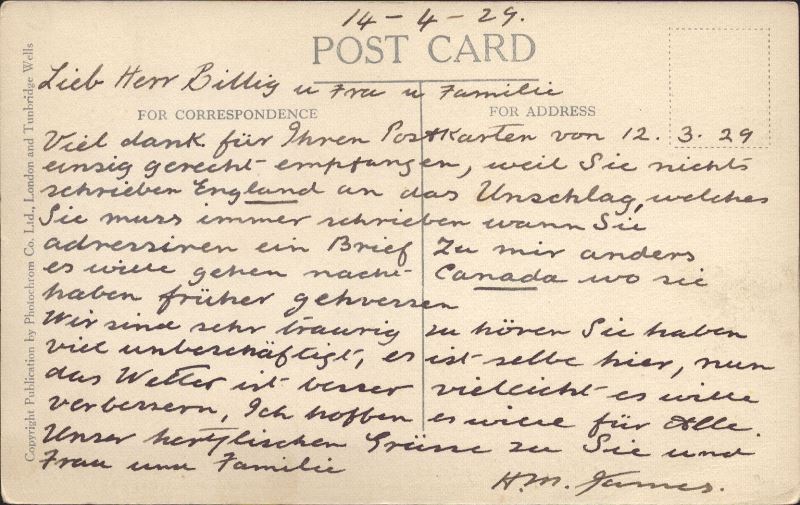 14-4-29.
POST CARD
Lieb Herr Billig u Frau u Familie
FOR CORRESPONDENCE
FOR ADDRESS
Viel dank für Ihren Postkarten von 12.3.29
einsig gerecht empfangen, weil Sie nichts
schrieben England an das Unschlag, welches
Sie muss immer schrieben wann Sie
adressiren ein Brief zu mir anders
es wille gehen nacht Canada wo sie
haben früher gehwessen
Wir sind sehr traurig zu hören Sie haben
viel unbeschäftigt, es ist selbe hier, nun
das Wetter ist besser vielleicht es wille
verbessern, Ich hoffen es wille für Alle.
Unser hertzlischen Grüsse zu Sie und
Frau und Familie
H.M. James.
Copyright Publication by Photochrom Co. Ltd., London and Tunbridge Wells